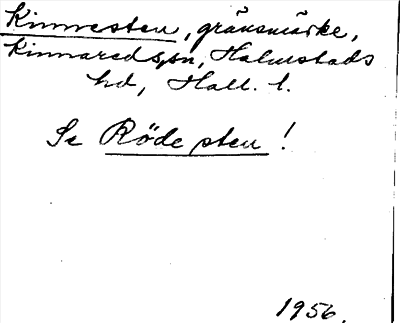 Kinnesten, gränsmärke,
Kinnareds sn, Halmstads
hd, Hall. l.
Se Röde sten!
1956.